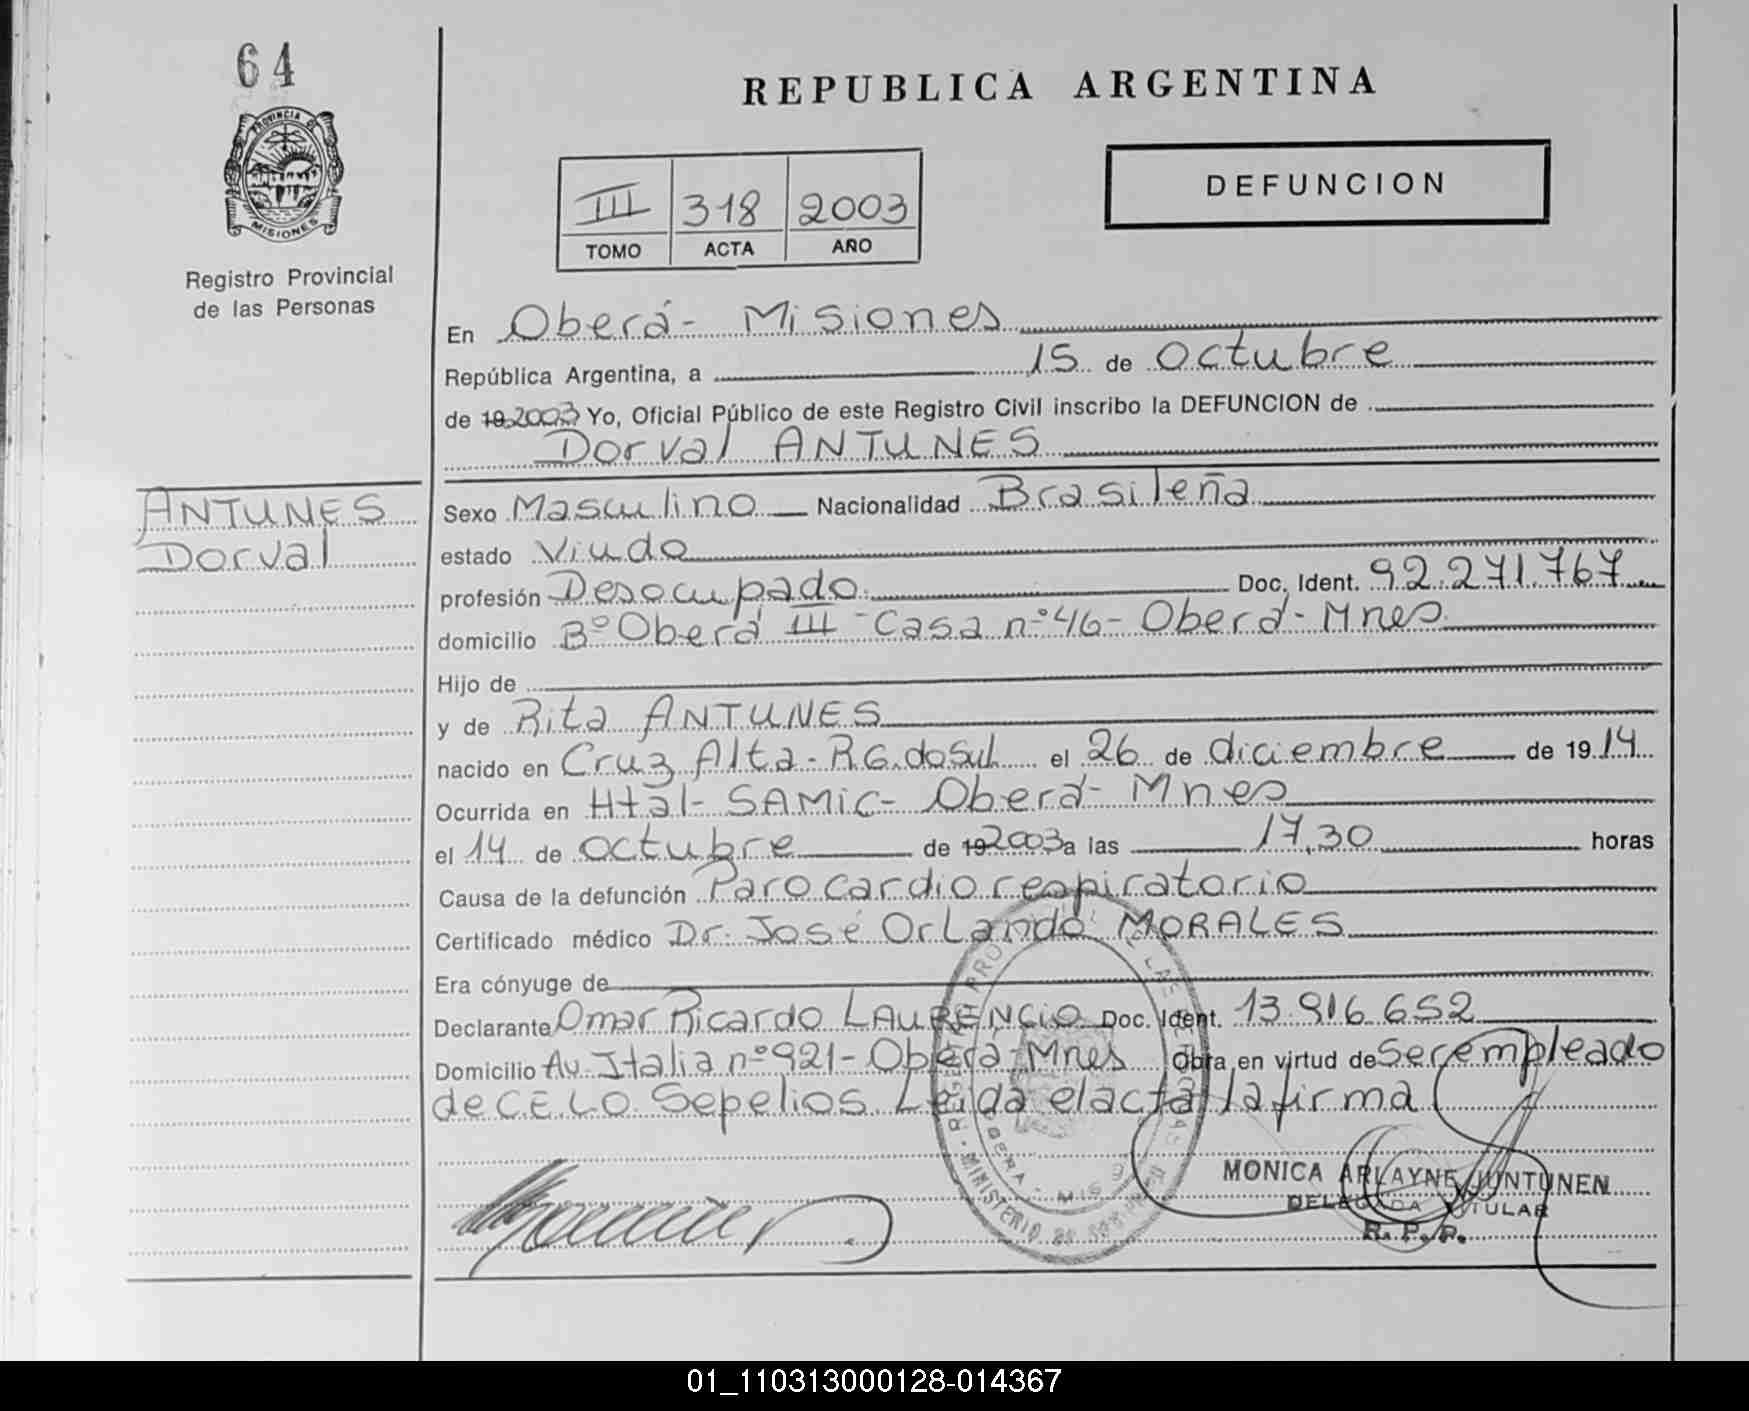 64
PROVINCIA DE
MISIONES
Registro Provincial
de las Personas
REPUBLICA ARGENTINA
III 318 2003
TOMO ACTA AÑO
DEFUNCION
En Oberá- Misiones
República Argentina, a 15 de octubre
de 19 2003 Yo, Oficial Público de este Registro Civil inscribo la DEFUNCION de
Dorval ANTUNES
ANTUNES
Dorval
Sexo Masculino Nacionalidad Brasileña
estado Viudo
profesión Desocupado Doc. Ident. 92.271.767
domicilio Bº Oberá III - Casa nº 46- Oberá- Mnes
Hijo de
y de Rita ANTUNES
nacido en Cruz Alta- RG. do Sul el 26 de diciembre de 19 14
Ocurrida en Htal- SAMIC- Oberá- Mnes
el 14 de octubre de 19 2003 a las 17,30 horas
Causa de la defunción Paro cardiorespiratorio
Certificado médico Dr. José Orlando MORALES
Era cónyuge de
Declarante Omar Ricardo LAURENCIO Doc. Ident. 13.916.652
Domicilio Av. Italia nº 921- Oberá- Mnes Obra en virtud de Ser empleado
de C.E.L.O. Sepelios. Leida el acta la firma
MONICA ARLAYNE JUNTUNEN
DELEGADA TITULAR
R. P. P.
01_110313000128-014367